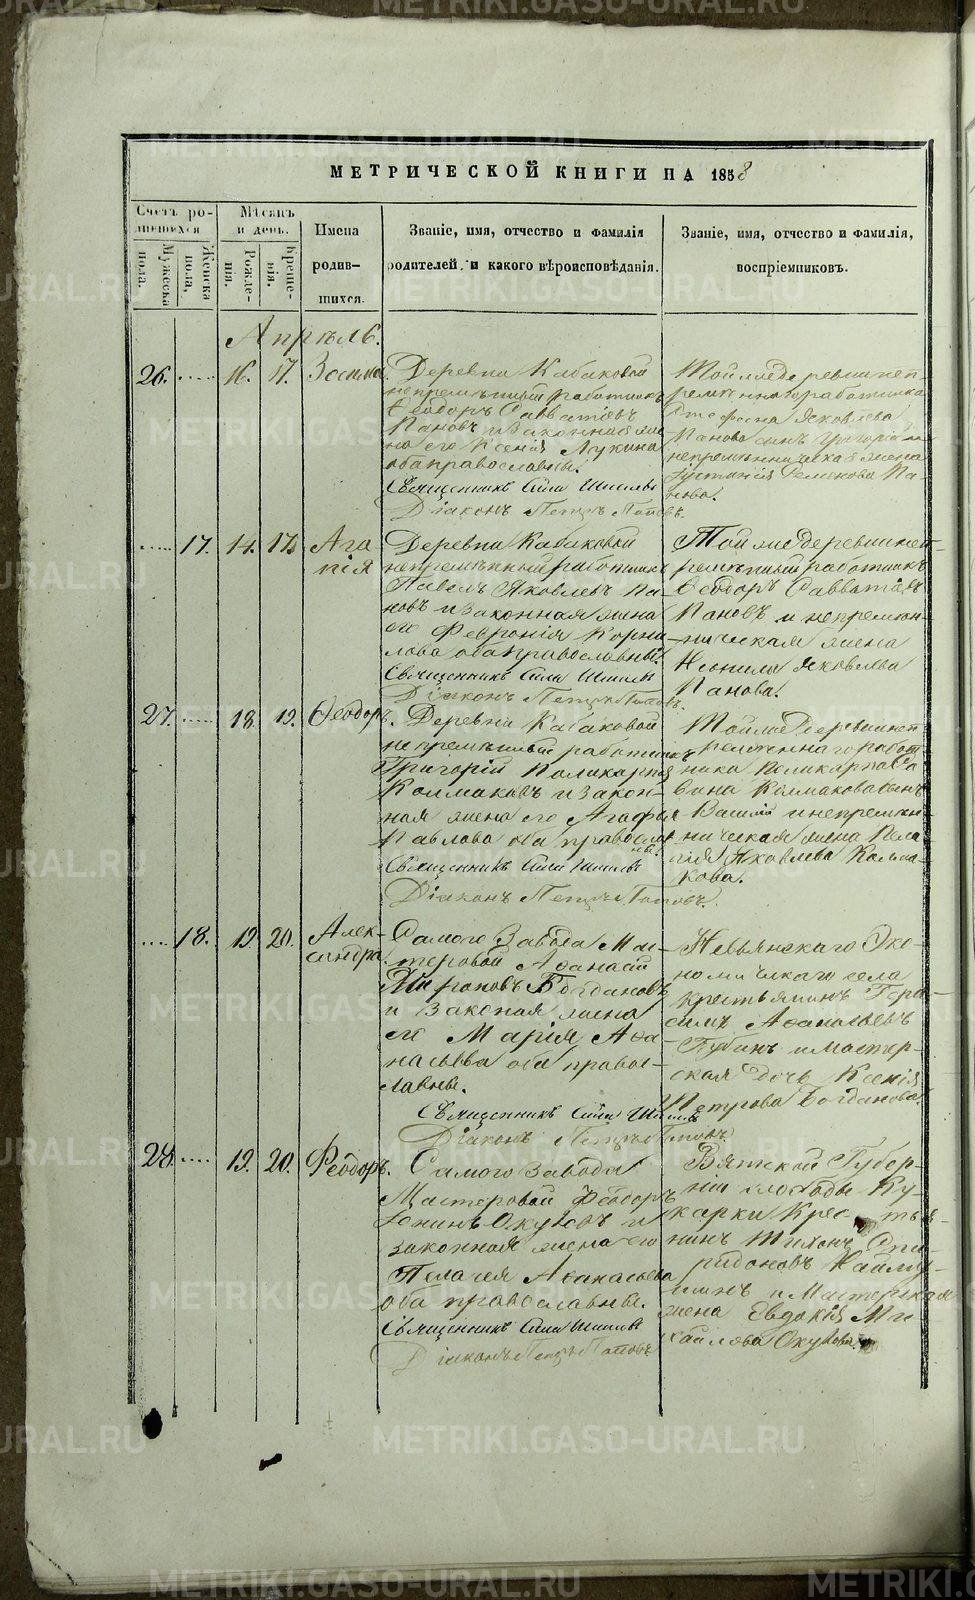 МЕТРИЧЕСКОЙ КНИГИ НА 1858
Счетъ родившихся
Мужеска пола.
Женска пола,
Мѣсяцъ и день.
Рожденія.
Крещенія.
Имена родившихся.
Званіе, имя, отчество и фамилія родителей, и какого вѣроисповѣданія.
Званіе, имя, отчество и фамилія, воспріемниковъ.
Апрѣль.
26. 16. 17. Зосима.
Деревни Кабаковой
непремѣнный работникъ
Ѳеодоръ Савватіевъ
Пановъ и законная же-
на его Ксенія Лукина
оба православны.
Священникъ Сила
Діаконъ Петръ Поповъ.
Той же деревни неп-
ремѣннаго работника
Стефана Яковлева
Панова сынъ Григорій и
непремѣнническая жена
Іустинія Семенова Па-
нова.
17. 14. 17. Ага
пія
Деревни Кабаковой
непремѣнный работникъ
Павелъ Яковлевъ Па-
новъ и законная жена
его Февронія Корни-
лова оба православны.
Священникъ Сила
Діаконъ Петръ Поповъ.
Той же деревни неп-
ремѣнный работникъ
Ѳеодоръ Савватіевъ
Пановъ и непремѣн-
ническая жена
Неонила Яковлева
Панова.
27. 18. 19. Ѳеодоръ.
Деревни Кабаковой
непремѣнный работникъ
Григорій Поликарповъ
Колмаковъ и закон-
ная жена его Агафья
Павлова оба православ
ны.
Священникъ Сила
Діаконъ Петръ Поповъ.
Той же Деревни неп-
ремѣннаго работ
ника Поликарпа Са
вина Колмакова сынъ
Василій и непремѣн
ническая жена Пела
гія Яковлева Колма-
кова.
18. 19. 20. Алек-
сандра.
Самого Завода Мас-
теровой Аѳанасій
Мироновъ Богдановъ
и Законая жена
его Марія Аѳа
насьева оба правос-
лавны.
Священникъ Сила
Діаконъ Петръ Поповъ
Невьянскаго Эко-
номическаго села
крестьянинъ Гера-
симъ Аѳанасьевъ
Губинъ и мастер-
ская дочь Ксенія
Петрова Богданова.
28. 19. 20. Ѳеодоръ.
Самого завода
Мастеровой Ѳеодоръ
Іонинъ Окуловъ и
законная жена его
Пелагея Аѳанасьева
оба православны.
Священникъ Сила
Діаконъ Петръ Поповъ
Вятской Губер-
ніи слободы Ку-
карки Крестья-
нинъ Тихонъ Спи-
ридоновъ
и Мастерская
жена Евдокія Ми
хайлова Окулова.
METRIKI.GASO-URAL.RU